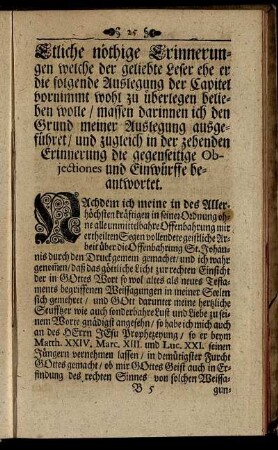 25
Etliche nöthige Erinnerun-
gen welche der geliebte Leser ehe er
die folgende Auslegung der Capitel
vornimmt wohl zu überlegen belie-
ben wolle / massen darinnen ich den
Grund meiner Auslegung ausge-
führet / und zugleich in der zehenden
Erinnerung die gegenseitige Ob-
jectiones und Einwürffe be-
antwortet.
NAchdem ich meine in des Aller-
höchsten kräfftigen in seiner Ordnung oh-
ne alle unmittelbahre Offenbahrung mir
ertheiltem Segen vollendete geistliche Ar-
beit über die Offenbahrung St. Johan-
nis durch den Druck gemein gemachet / und ich wahr
genommen / daß das göttliche Licht zur rechten Einsicht
der in GOttes Wort so wol altes als neues Testa-
ments begriffenen Weissagungen in meiner Seelen
sich gemehret / und GOtt darunter meine hertzliche
Seufftzer wie auch sonderbahre Lust und Liebe zu sei-
nem Worte gnädigst angesehn / so habe ich mich auch
an des HErrn JEsu Prophezeyung / so er beym
Matth. XXIV, Marc. XIII. und Luc. XXI. seinen
Jüngern vernehmen lassen / in demütigster Furcht
GOttes gemachet / ob mir GOttes Geist auch in Er-
findung des rechten Sinnes von solchen Weissa-
B 5 gun-